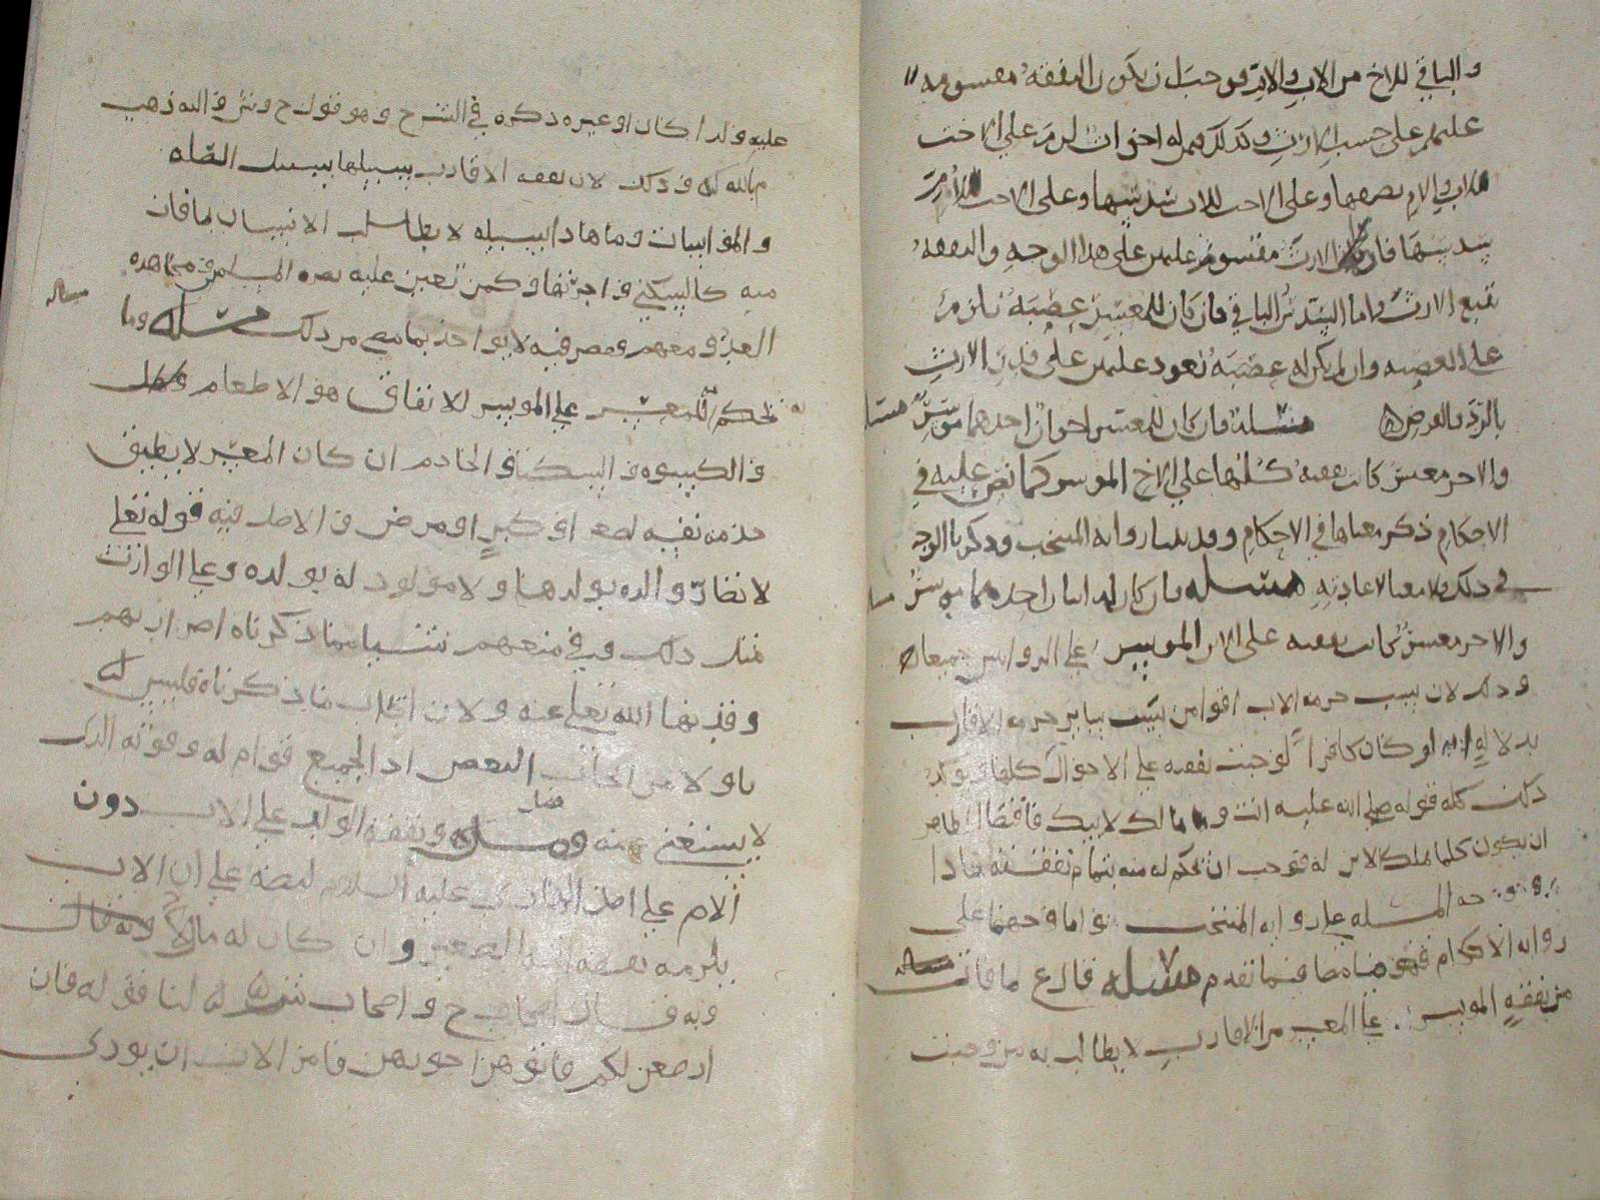 والباقي للاخ من الاب والام فوجب ان يكون النفقه مقسومه
عليهم على حسب الارث وكذلك فمن له اخوات لزم على الاخت
للاب والام نصفها وعلى الاخت للاب سدسها وعلى الاخت للام
سدسها فان الارث مقسوم عليهن على هذا الوجه والنفقه
تتبع الارث واما السدس الباقي فان كان للمعسر عصبه يلزم
على العصبه وان لم يكن له عصبه تعود عليهن على قدر الارث
بالرد والفرض مسئلة فان كان للمعسر اخوان احدهما موسر
والاخر معسر كانت نفقته كلها على الاخ الموسر كما نص عليه في
الاحكام ذكر معناها في الاحكام وقد بينا روايه المنتخب وذكرنا الوجه
في ذلك فلا معنا لاعادته مسئله فان كان له ابنان احدهما موسر
والاخر معسر كانت نفقته على الابن الموسر على الروايتين جميعا
وذلك لان سبب حرمه الاب اقوا من سبب سائر حرمه الاقارب
بدلاله انه لو كان كافرا لوجبت نفقته على الاحوال كلها ويؤيد
ذلك كله قوله صلى الله عليه انت ومالك لابيك فاقتضا الظاهر
ان يكون كلما ملك الابن له فوجب ان نحكم له منه بتمام نفقته
وجه المسئله على روايه المنتخب واما وجهها على
روايه الاحكام فهو فيما تقدم مسئله قال ع ما فات
من نفقة الموسر على المعسر من الاقارب لا يطالب به من وجبت
عليه ولدا كان او غيره ذكره في الشرح وهو قول ح وش واليه ذهب
م بالله في ذلك لان نفقه الاقارب سبيلها سبيل الصله
والمواساه وما هذا سبيله لا يطالب الانسان بما فات
منه كالسكنى واجرتها وكمن تعين عليه نصره المسلمين في مجاهده
العدو ومعهم وقصر فيه لا يواخذ بما مضى من ذلك مسئله وما
نحكم للمعسر على الموسر للانفاق هو الاطعام
والكسوه والسكنا والخادم ان كان المعسر لا يطيق
خدمه نفسه لصغر او كبر او مرض والاصل فيه قوله تعلى
لا تضار والده بولدها ولا مولود له بولده وعلى الوارث
مثل ذلك وفي منعهم شيا مما ذكرناه اضرار بهم
وقد نها الله تعلى عنه ولان ايجاب ما ذكرناه فليس له
باولا من ايجاب البعض اذ الجميع قوام له وقوته الذي
لا يستغني عنه فصل ونفقه الولد على الاب دون
الام على اصل الهادي عليه السلام لنصه على ان الاب
يلزمه نفقه الصغير وان كان له مال
وبه قال ح واصحاب ش له لنا قوله فان
ارضعن لكم فاتوهن اجورهن فامر الاب ان يودي